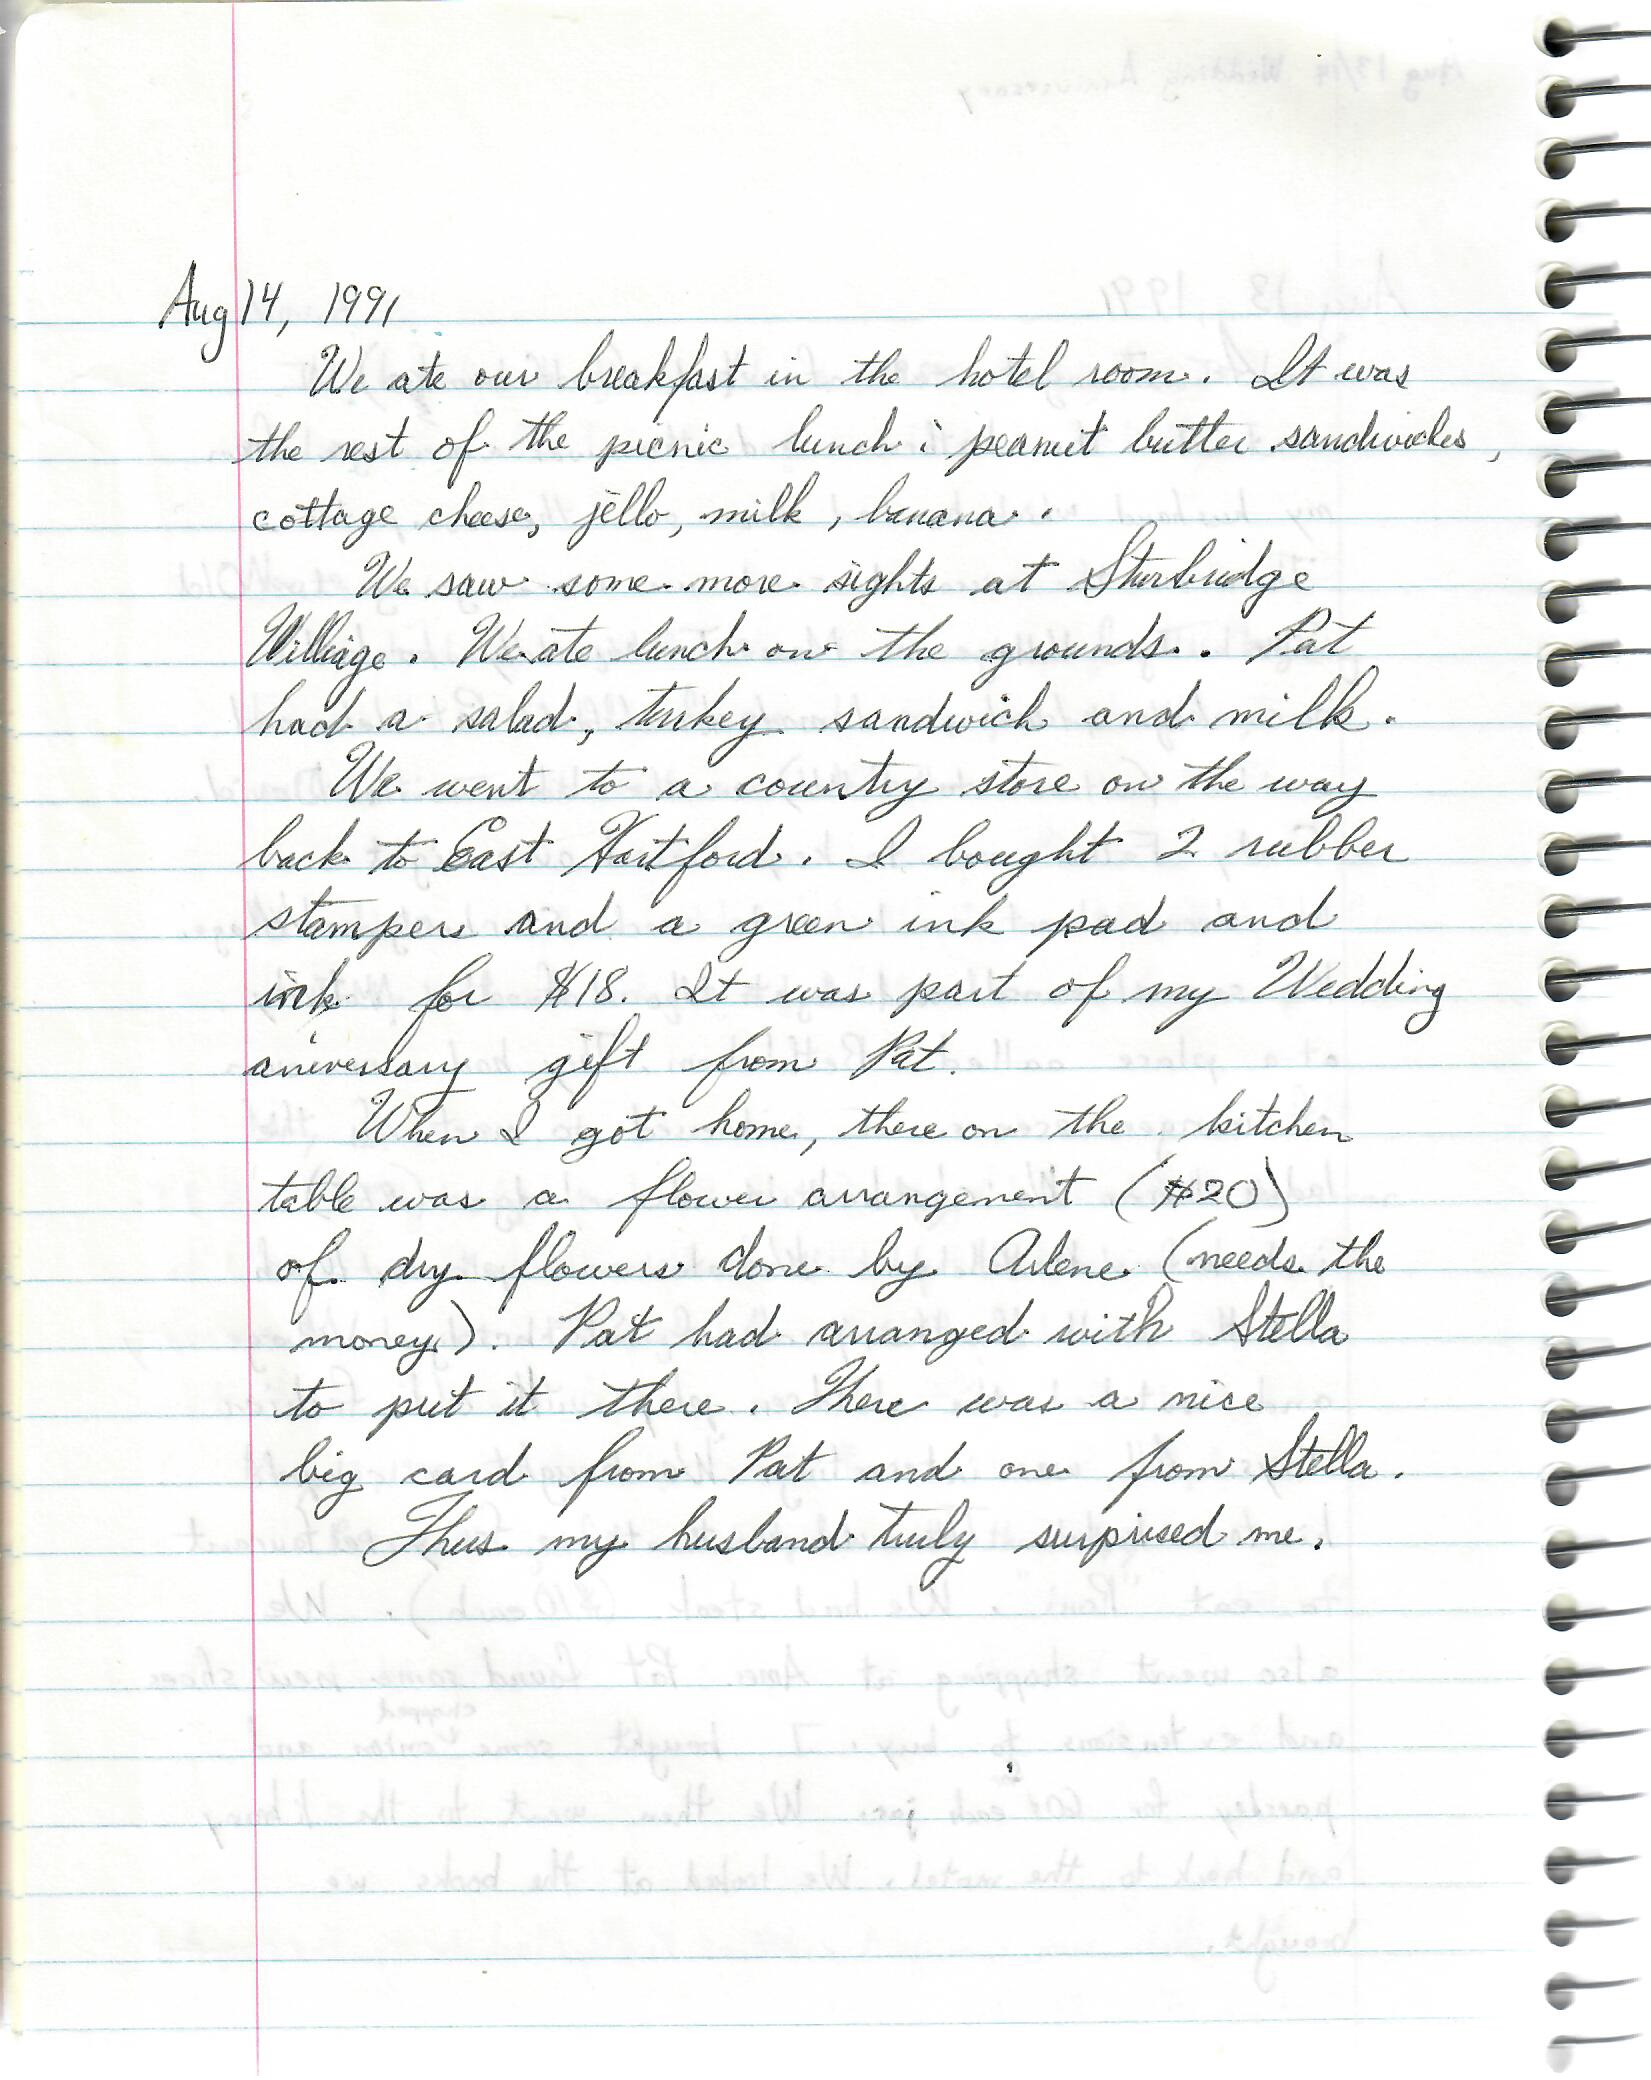 Aug 14, 1991
We ate our breakfast in the hotel room. It was
the rest of the picnic lunch : peanut butter sandwiches,
cottage cheese, jello, milk, banana.
We saw some more sights at Sturbridge
Villiage. We ate lunch on the grounds. Pat
had a salad, turkey sandwich and milk.
We went to a country store on the way
back to East Hartford. I bought 2 rubber
stampers and a green ink pad and
ink for $18. It was part of my Wedding
aniversary gift from Pat.
When I got home, there on the kitchen
table was a flower arrangement ($20)
of dry flowers done by Arlene (needs the
money). Pat had arranged with Stella
to put it there. There was a nice
big card from Pat and one from Stella.
Thus my husband truly surprised me.